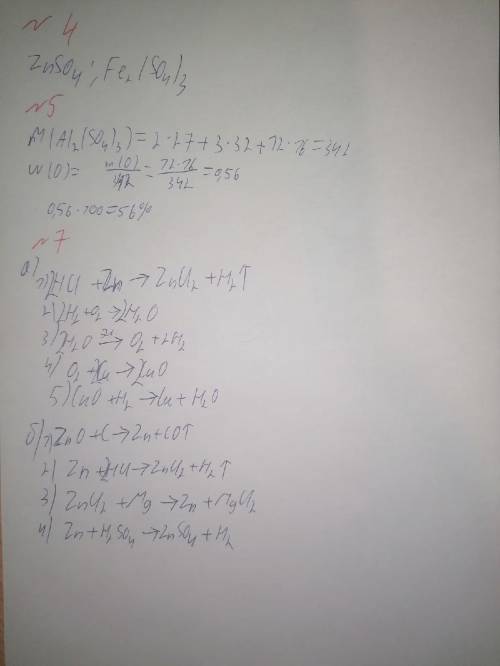 № 4
ZnSO4; Fe2(SO4)3
№5
M(Al2(SO4)3)=2·27+3·32+12·16=342
W(O)= m(O)/342 = 12·16/342 =0,56
0,56·100=56%
№7
а) 1) 2HCl + Zn → ZnCl2 + H2↑
2) 2H2+O2→2H2O
3) 2H2O → O2+2H2
4) O2+2Cu→2CuO
5) CuO + H2 → Cu + H2O
б) 1) ZnO+C→Zn+CO↑
2) Zn+2HCl→ZnCl2+H2↑
3) ZnCl2 +Mg →Zn + MgCl2
4) Zn+H2SO4→ZnSO4+H2